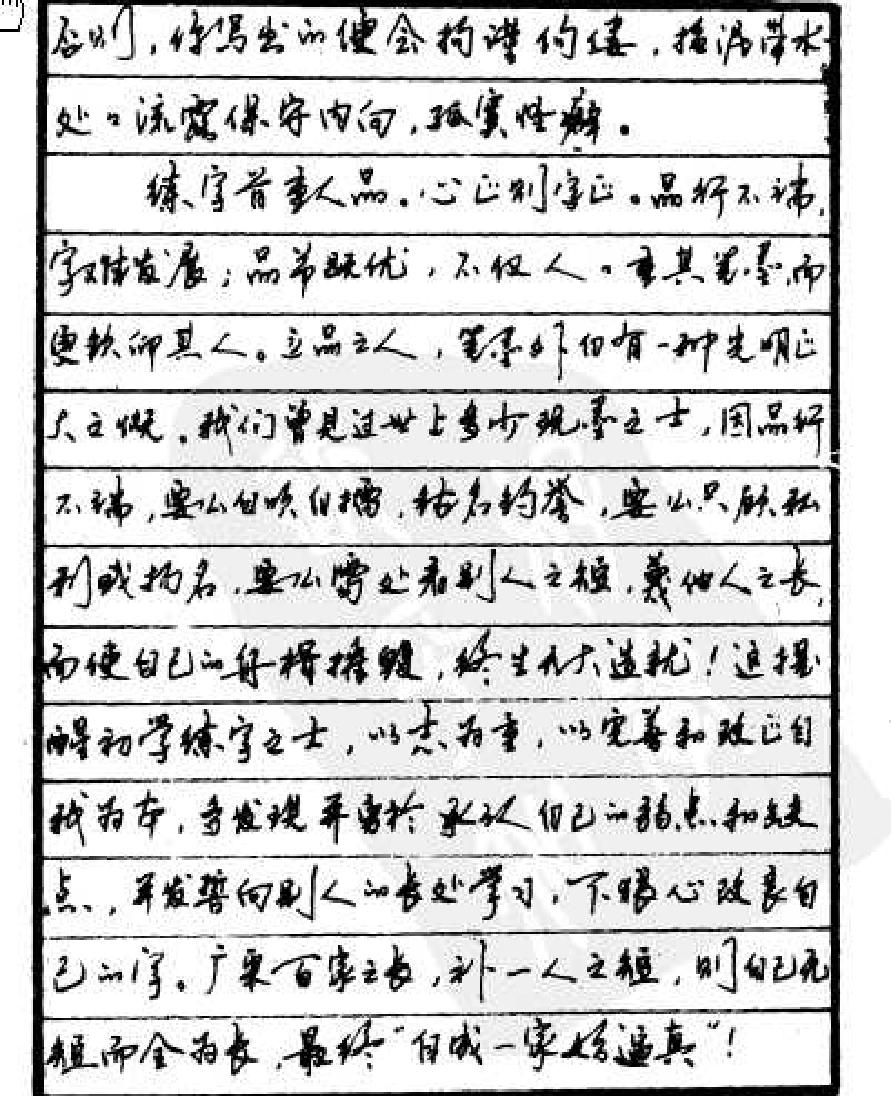 否则，你写出的便会拘谨佝偻，拖泥带水
处々流露保守内向，孤寞怪癖。
练字首重人品。心正则字正。品行不端，
字难发展；品节既优，不仅人。重其笔墨，而
更钦仰其人。立品之人，笔墨外自有一种光明正
大之慨。我们曾见过世上多少玩墨之士，因品行
不端，要么自吹自擂，沽名钓誉，要么只顾私
利或扬名，要么需处看别人之短，蔑他人之长，
而使自己的舟楫搁，终生无大造就！这提
醒初学练字之士，以志为重，以完善和改正自
我为本，多发现并勇於承认自己的弱点和缺
点，并发誓向别人的长处学习，下狠心改良自
己的字。广采百家之长，补一人之短，则自己无
短而全为长，最终“自成一家始逼真”！